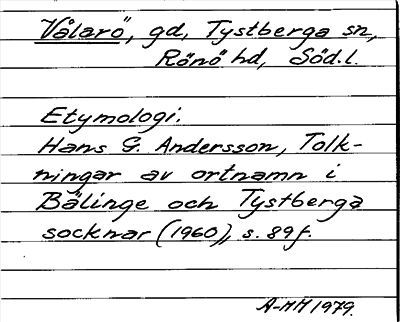 Vålarö, gd, Tystberga sn,
Rönö hd, Söd.l.
Etymologi.
Hans G. Andersson, Tolk-
ningar av ortnamn i
Bälinge och Tystberga
socknar (1960), s. 89f.
A-MM 1979.